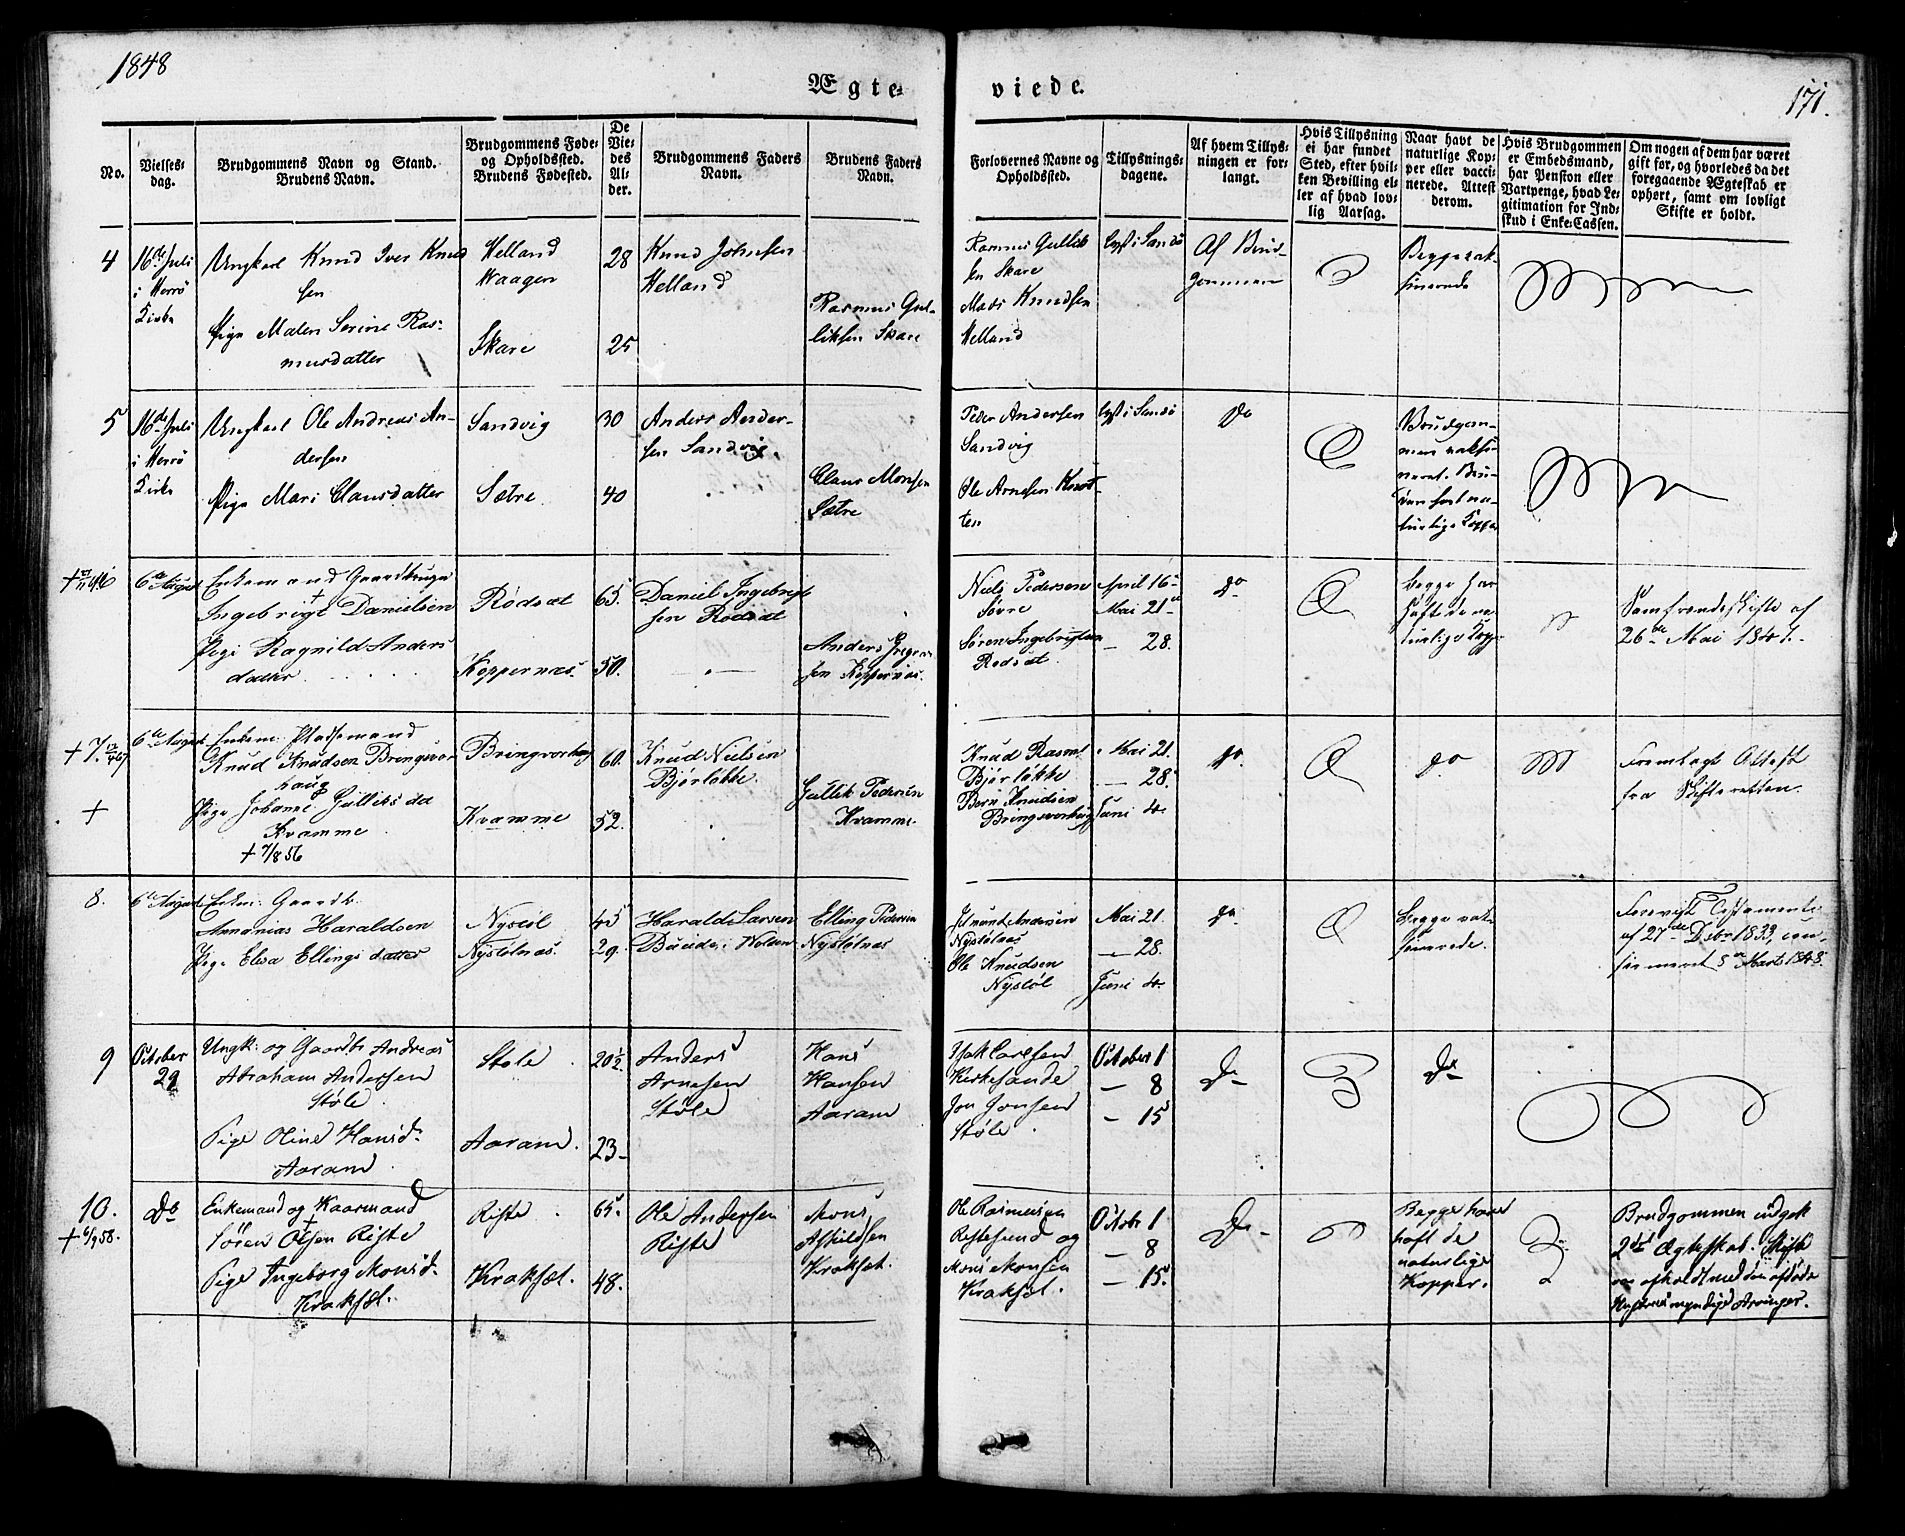 1848
Ægte-
viede.
171.
No.
Vielses-
dag.
Brudgommens Navn og Stand.
Brudens Navn.
Brudgommens Føde-
og Opholdssted.
Brudens Fødested.
De
Vie-
des
Al-
der.
Brudgommens Faders
Navn.
Brudens Faders
Navn.
Forlovernes Navne og
Opholdssted.
Tillysnings-
dagene.
Af hvem Tillys-
ningen er for-
langt.
Hvis Tillysning
ei har fundet
Sted, efter hvil-
ken Bevilling el-
ler af hvad lov-
lig Aarsag.
Naar havt de
naturlige Kop-
per eller vacci-
nerede. Attest
derom.
Hvis Brudgommen
er Embedsmand,
har Pension eller
Vartpenge, hvad Le-
gitimation for Ind-
skud i Enke-Cassen.
Om nogen af dem har været
gift før, og hvorledes da det
foregaaende Ægteskab er
ophørt, samt om lovligt
Skifte er holdt.
4
16de Juli
i Herrö
Kirke
Ungkarl Knud Iver Knud
sen
Pige Malen Serine Ras-
musdatter
Helland
Waagen
Skare
28
25
Knud Johnsen
Helland
Rasmus Gul-
liksen Skare
Rasmus Gullik
sen Skare
Mads Knudsen
Helland
lyst i Sandö
Af Brud-
gommen
Begge vak-
sinerede
5
16de Juli
i Herrö
Kirke
Ungkarl Ole Andreas An-
dersen
Pige Mari Clausdatter
Sandvig
Sætre
30
40
Anders Ander-
sen Sandvig.
Claus Monsen
Sætre
Peder Andersen
Sandvig
Ole Arnesen Knot-
ten
lyst i Sandö
do
Brudgom-
men vaksi-
neret. Bru-
den havt na-
turlige Kopper
6
6te August
Enkemand Gaardbruger
Ingebrigt Danielsen
Pige Ragnild Anders
datter
Rödsæt
Koppernæs.
65.
50.
Daniel Ingebrigt
sen Rödsæt
Anders
sen Koppernæs.
Niels Pedersen
Søvre
Søren Ingebrigtsen
Rödsæt.
April 16
Mai 21
— 28.
do
begge har
haft de na-
turlige Kopp.
Samfrændeskifte af
26de Mai 184
+ 7.
+
6te August
Enkem: Pladsemand
Knud Knudsen Bringsvor
haug
Pige Johanne Gulliks da
Kvamme
+ 7/8 56
Bringsvorhaug
Kvamme
60.
52.
Knud Nielsen
Bjørløkke.
Gullik Pedersen
Kvamme.
Knud Rasm
Bjørløkke
Bern Knudsen
Bringsvorhaug
Mai 21.
— 28.
Juni 4.
do.
do
Fremlagt Attest
fra Skifteretten.
8.
6te August
Enkem: Gaardb.
Annanias Haraldsen
Pige Elsa Ellings datter
Nystöl
Nystölnæs.
45
29.
Harald Larsen
Elling Pedersen
Nystölnæs
Andersen
Nystölnæs
Ole Knudsen
Nystöl
Mai 21.
— 28.
Juni 4.
do
begge vak
sinerede.
Forevist Testamente
af 27de Debr 1833, con-
firmeret 5 Marts 1848.
9
October
29
Ungk: og Gaardbr Andreas
Abraham Andersen
Støle.
Pige Oline Hansd.
Aaram
Støle
Aaram.
20½
23
Anders
Arnesen
Støle
Hans
Hansen
Aaram
Isak Carlsen
Kirkesande
Jon Jonsen
Støle.
October 1
— 8
— 15
Do
Do
10.
+ 6/9 58.
Do
Enkemand og Kaarmand
Søren Olsen Riste
Pige Ingeborg Monsd.
Kraksæt.
Riste
Kraksæt.
65.
48.
Ole Andersen
Riste
Mons
Askildsen
Kraksæt.
Ole Rasmussen
Røstesund og
Mons Monsen
Kraksæt.
Octobr 1
— 8
— 15.
Do
Begge have
haft de
naturlige
Kopper.
Brudgommen indgik
2det Ægteskab. Skifte
afholdt med den afdøde
Hustrues myndige Arvinger.